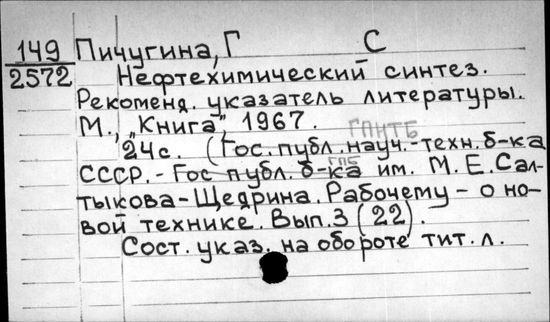 149 Пичугина, Г С
2572 Нефтехимический синтез.
Рекоменд. указатель литературы.
М., „Книга”, 1967.
ГПНТБ
24с. (Гос. публ. науч.-техн. б-ка
ГПБ
СССР.- Гос публ. б-ка им. М.Е.Сал-
тыкова-Щедрина. Рабочему - о но-
вой технике. Вып.3 (22).
Сост. указ. на обороте тит. л.